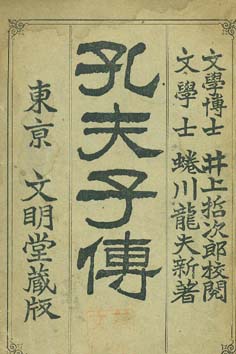 文學博士 井上哲次郎校閱
文學士 蜷川龍夫新著
孔夫子傳
東京 文明堂藏版